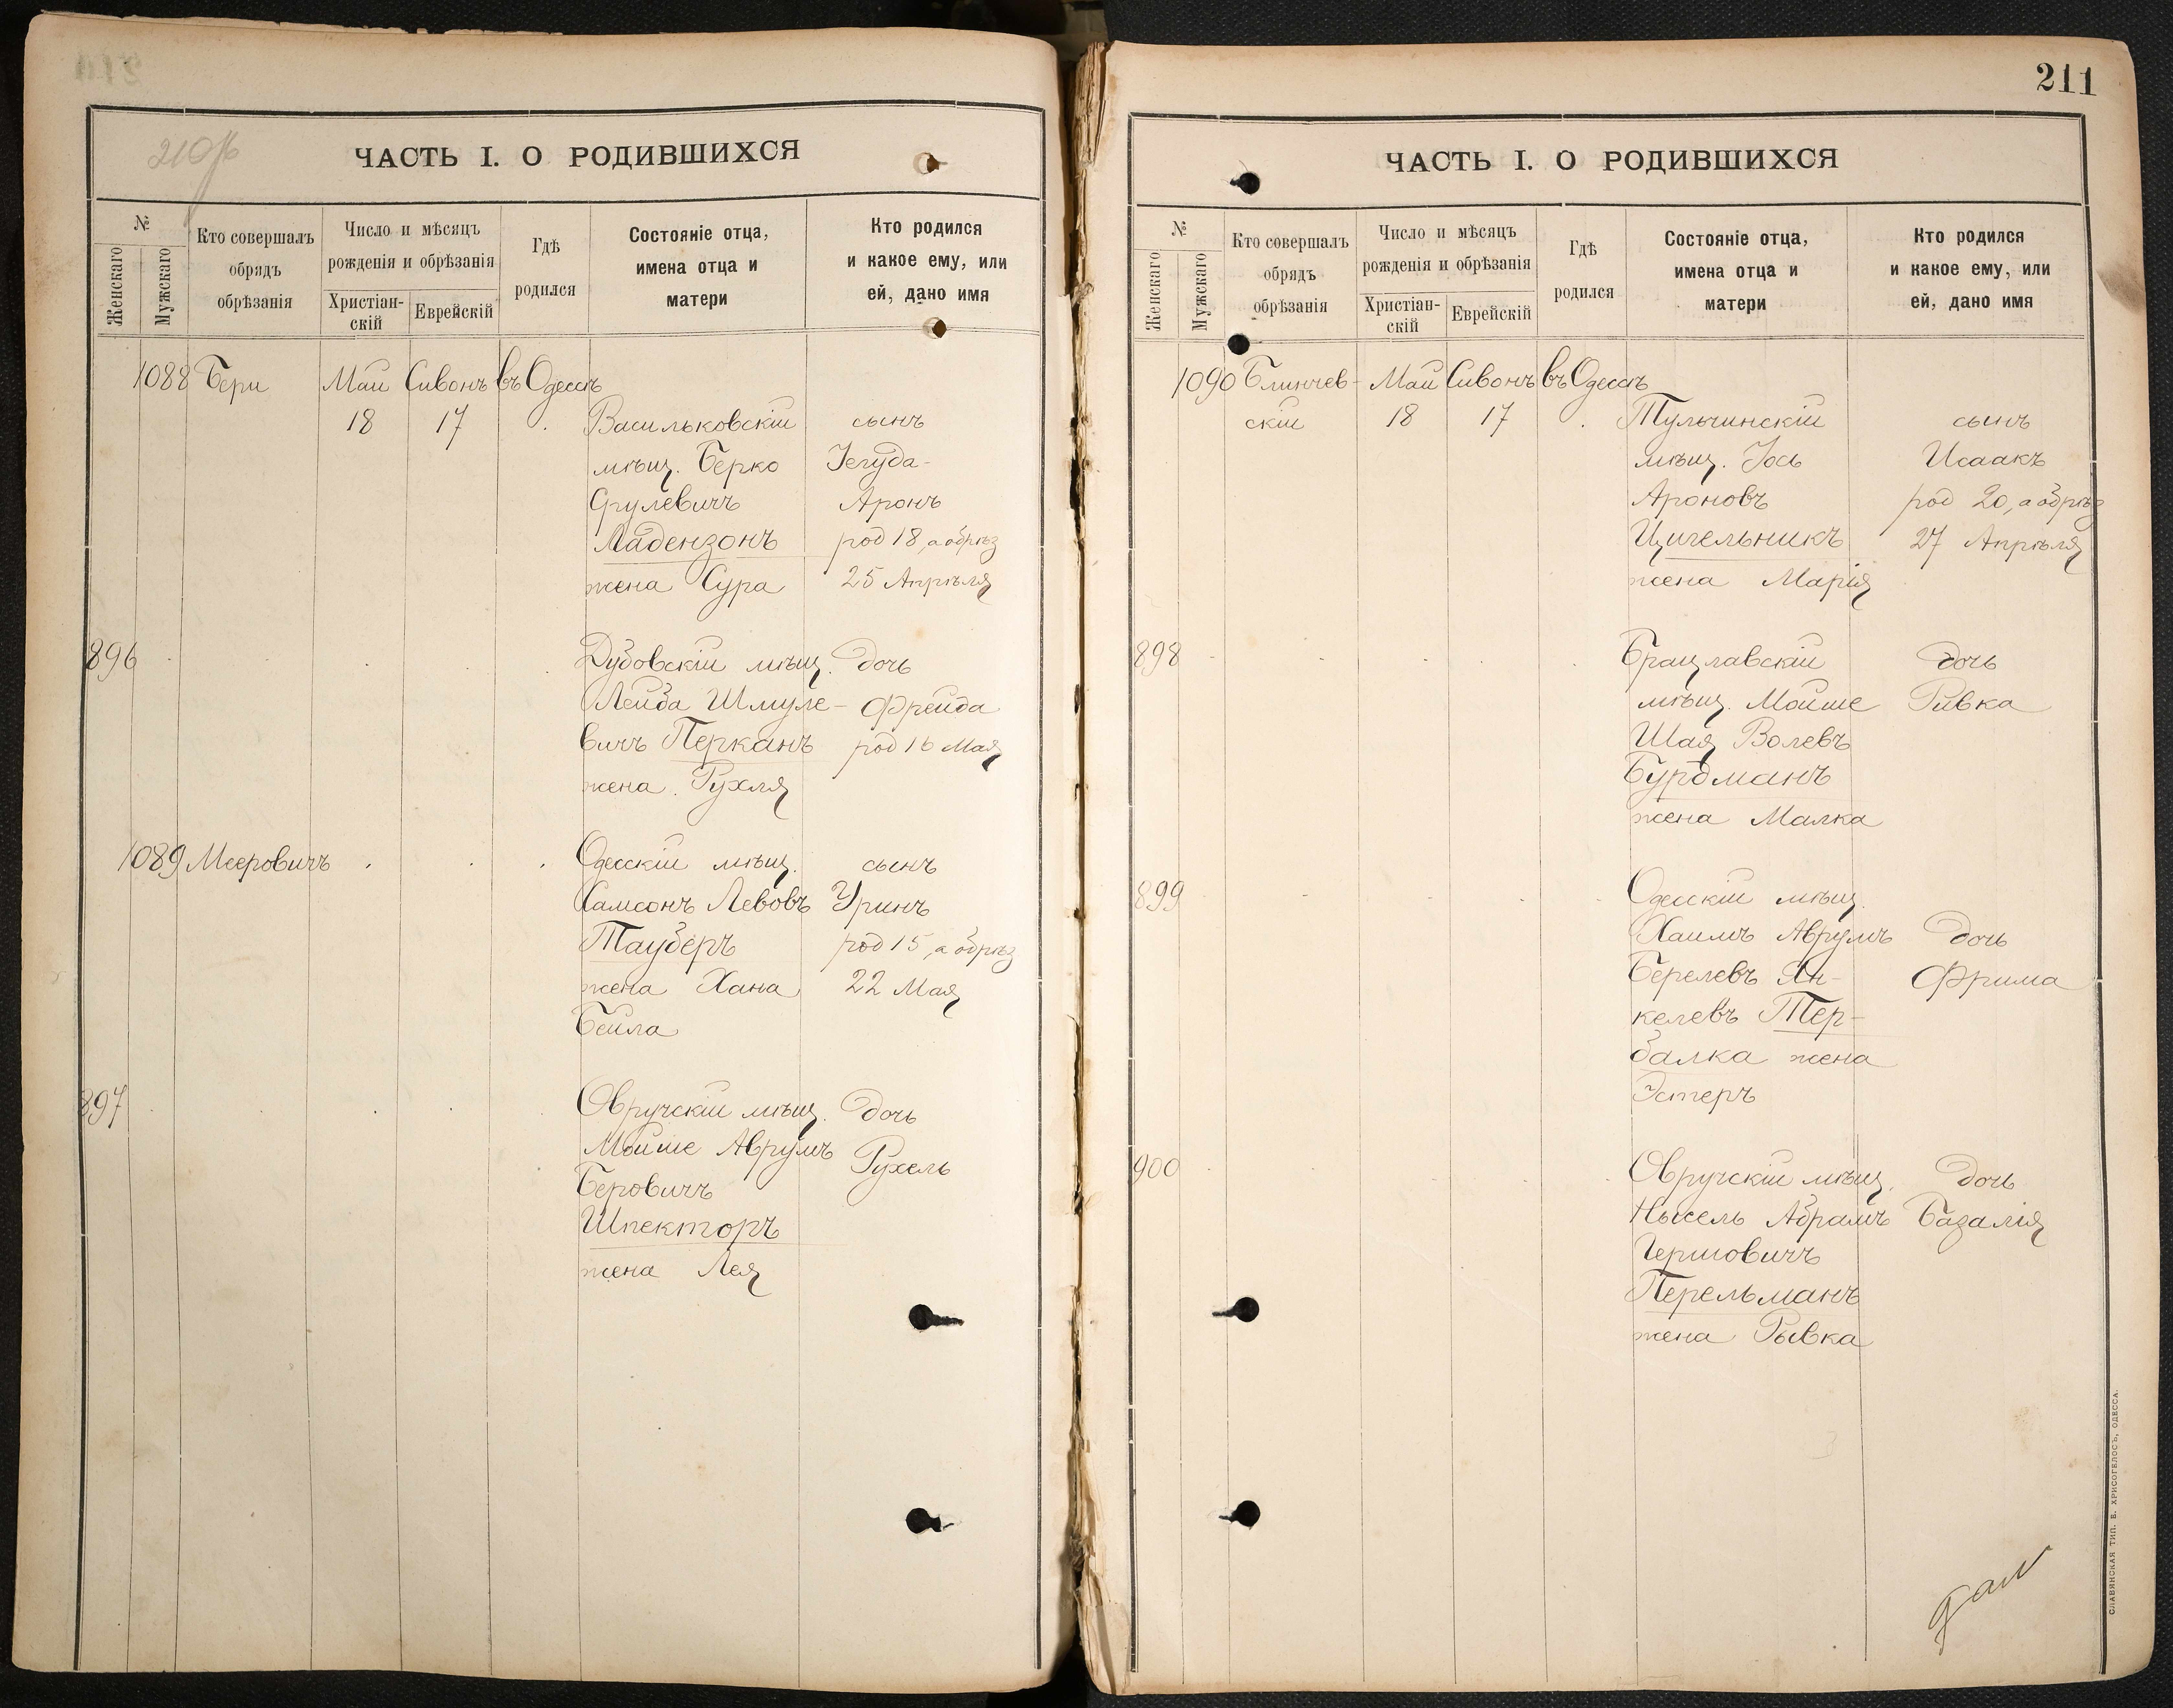 210 об
ЧАСТЬ I. О РОДИВШИХСЯ
№
Женскаго
Мужскаго
Кто совершалъ
обрядъ
обрѣзанія
Число и мѣсяцъ
рожденія и обрѣзанія
Христіан-
скій
Еврейскій
Гдѣ
родился
Состояніе отца,
имена отца и
матери
Кто родился
и какое ему, или
ей, дано имя
1088 Бери Май Сивонъ въ Одессѣ
18 17 Васильковскій сынъ
мѣщ. Берко Іегуда-
Срулевичъ Аронъ
Ладензонъ род 18, а обрѣз
жена Сура 25 Апрѣля
896 Дубовскій мѣщ. дочь
Лейба Шмуле- Фрейда
вичъ Перканъ род 16 Мая
жена Рухля
1089 Мееровичъ Одесскій мѣщ. сынъ
Самсонъ Левовъ Уринъ
Тауберъ род 15, а обрѣз
жена Хана 22 Мая
Бейла
897 Овручскій мѣщ. дочь
Мойше Аврумъ Рухель
Беровичъ
Шпекторъ
жена Лея
211
ЧАСТЬ I. О РОДИВШИХСЯ
№
Женскаго
Мужскаго
Кто совершалъ
обрядъ
обрѣзанія
Число и мѣсяцъ
рожденія и обрѣзанія
Христіан-
скій
Еврейскій
Гдѣ
родился
Состояніе отца,
имена отца и
матери
Кто родился
и какое ему, или
ей, дано имя
1090 Блинчев- Май Сивонъ въ Одессѣ
скій 18 17 Тульчинскій сынъ
мѣщ. Іось Исаакъ
Ароновъ род 20, а обрѣз
Цигельникъ 27 Апрѣля
жена Марія
898 Брацлавскій дочь
мѣщ. Мойше Ривка
Шая Волевъ
Бурдманъ
жена Малка
899 Одесскій мѣщ.
Хаимъ Аврумъ дочь
Берелевъ Ян- Фрима
келевъ Тер-
балка жена
Эстеръ
900 Овручскій мѣщ. дочь
Нысель Абрамъ Базалія
Гершовичъ
Перельманъ
жена Рывка
СЛАВЯНСКАЯ ТИП. Е. ХРИСОГЕЛОСЪ, ОДЕССА.